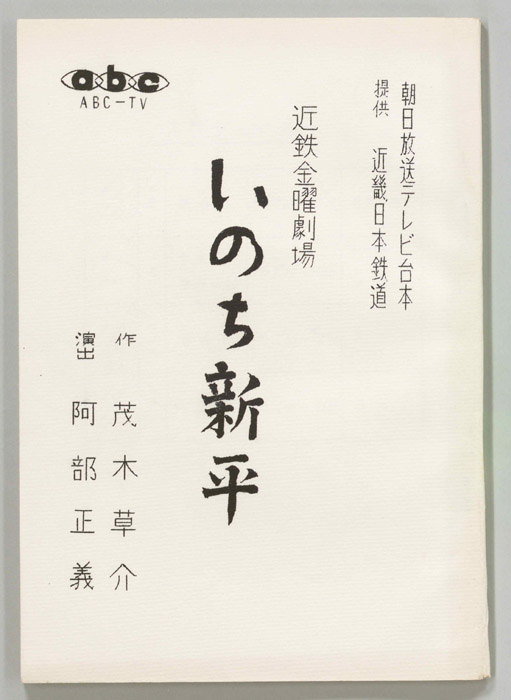 朝日放送テレビ台本
提供 近畿日本鉄道
近鉄金曜劇場
いのち新平
作 茂木草介
演出 阿部正義
abc
ABC-TV